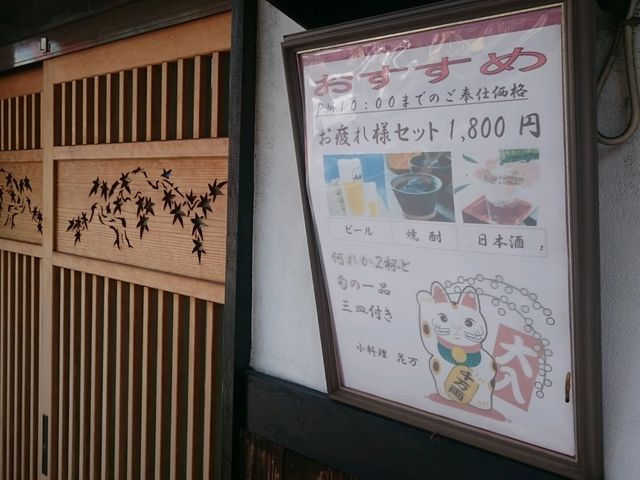 おすすめ
PM10:00までのご奉仕価格
お疲れ様セット1,800円
ビール 焼酎 日本酒
何れか2杯と
旬の一品
三皿付き
小料理 花万
千万両
大入